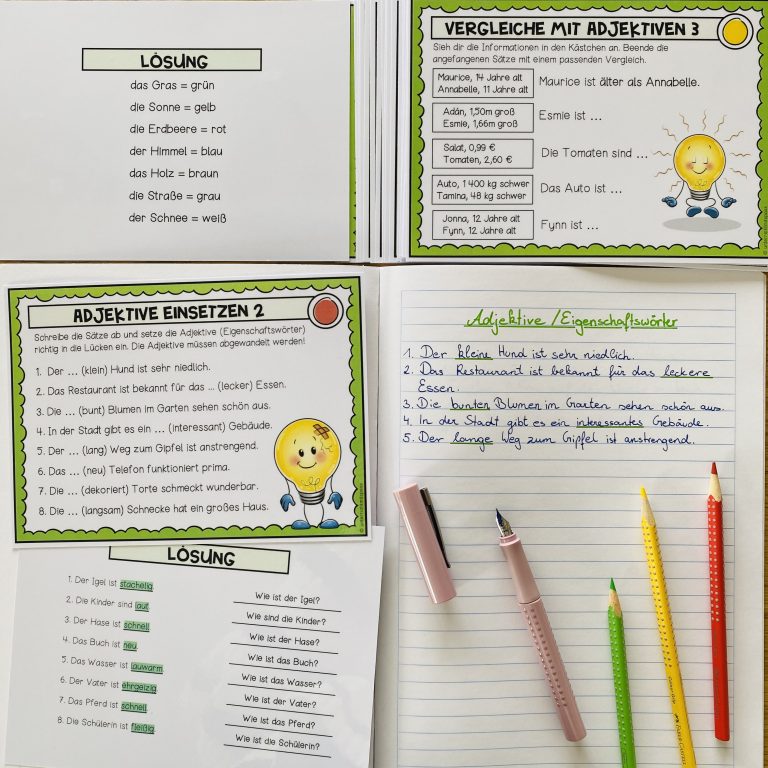 LÖSUNG
das Gras = grün
die Sonne = gelb
die Erdbeere = rot
der Himmel = blau
das Holz = braun
die Straße = grau
der Schnee = weiß
VERGLEICHE MIT ADJEKTIVEN 3
Sieh dir die Informationen in den Kästchen an. Beende die
angefangenen Sätze mit einem passenden Vergleich.
Maurice, 14 Jahre alt
Annabelle, 11 Jahre alt
Maurice ist älter als Annabelle.
Adán, 1,50m groß
Esmie, 1,66m groß
Esmie ist ...
Salat, 0,99 €
Tomaten, 2,60 €
Die Tomaten sind ...
Auto, 1 400 kg schwer
Tamina, 48 kg schwer
Das Auto ist ...
Jonna, 12 Jahre alt
Fynn, 12 Jahre alt
Fynn ist ...
ADJEKTIVE EINSETZEN 2
Schreibe die Sätze ab und setze die Adjektive (Eigenschaftswörter)
richtig in die Lücken ein. Die Adjektive müssen abgewandelt werden!
1. Der ... (klein) Hund ist sehr niedlich.
2. Das Restaurant ist bekannt für das ... (lecker) Essen.
3. Die ... (bunt) Blumen im Garten sehen schön aus.
4. In der Stadt gibt es ein ... (interessant) Gebäude.
5. Der ... (lang) Weg zum Gipfel ist anstrengend.
6. Das ... (neu) Telefon funktioniert prima.
7. Die ... (dekoriert) Torte schmeckt wunderbar.
8. Die ... (langsam) Schnecke hat ein großes Haus.
Adjektive/Eigenschaftswörter
1. Der kleine Hund ist sehr niedlich.
2. Das Restaurant ist bekannt für das leckere
Essen.
3. Die bunten Blumen im Garten sehen schön aus.
4. In der Stadt gibt es ein interessantes Gebäude.
5. Der lange Weg zum Gipfel ist anstrengend.
LÖSUNG
1. Der Igel ist stachelig.
Wie ist der Igel?
2. Die Kinder sind laut.
Wie sind die Kinder?
3. Der Hase ist schnell.
Wie ist der Hase?
4. Das Buch ist neu.
Wie ist das Buch?
5. Das Wasser ist lauwarm.
Wie ist das Wasser?
6. Der Vater ist ehrgeizig.
Wie ist der Vater?
7. Das Pferd ist schnell.
Wie ist das Pferd?
8. Die Schülerin ist fleißig.
Wie ist die Schülerin?